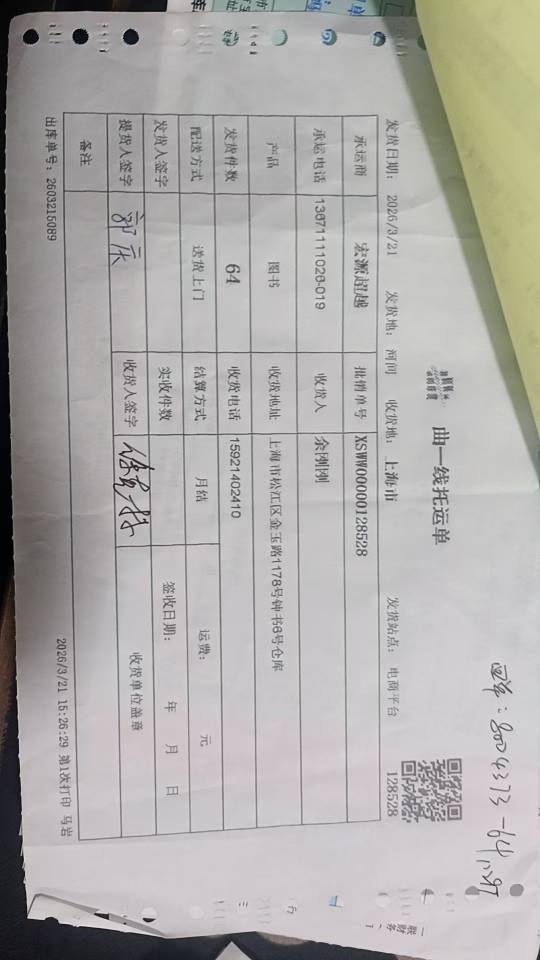 曲一线托运单
回单：8004373-64件
128528
发货日期： 2026/3/21 发货地： 河间 收货地： 上海市 发货站点： 电商平台
承运商 宏源超越 批销单号 XSWW00000128528
承运电话 13671111026-019 收货人 余刚刚
产品 图书 收货地址 上海市松江区金玉路1178号钟书6号仓库
发货件数 64 收货电话 15921402410
配送方式 送货上门 结算方式 月结 运费： 元
发货人签字 实收件数 签收日期： 年 月 日
提货人签字 收货人签字 收货单位盖章
备注
出库单号：2603215089 2026/3/21 15:26:29 第1次打印 马岩